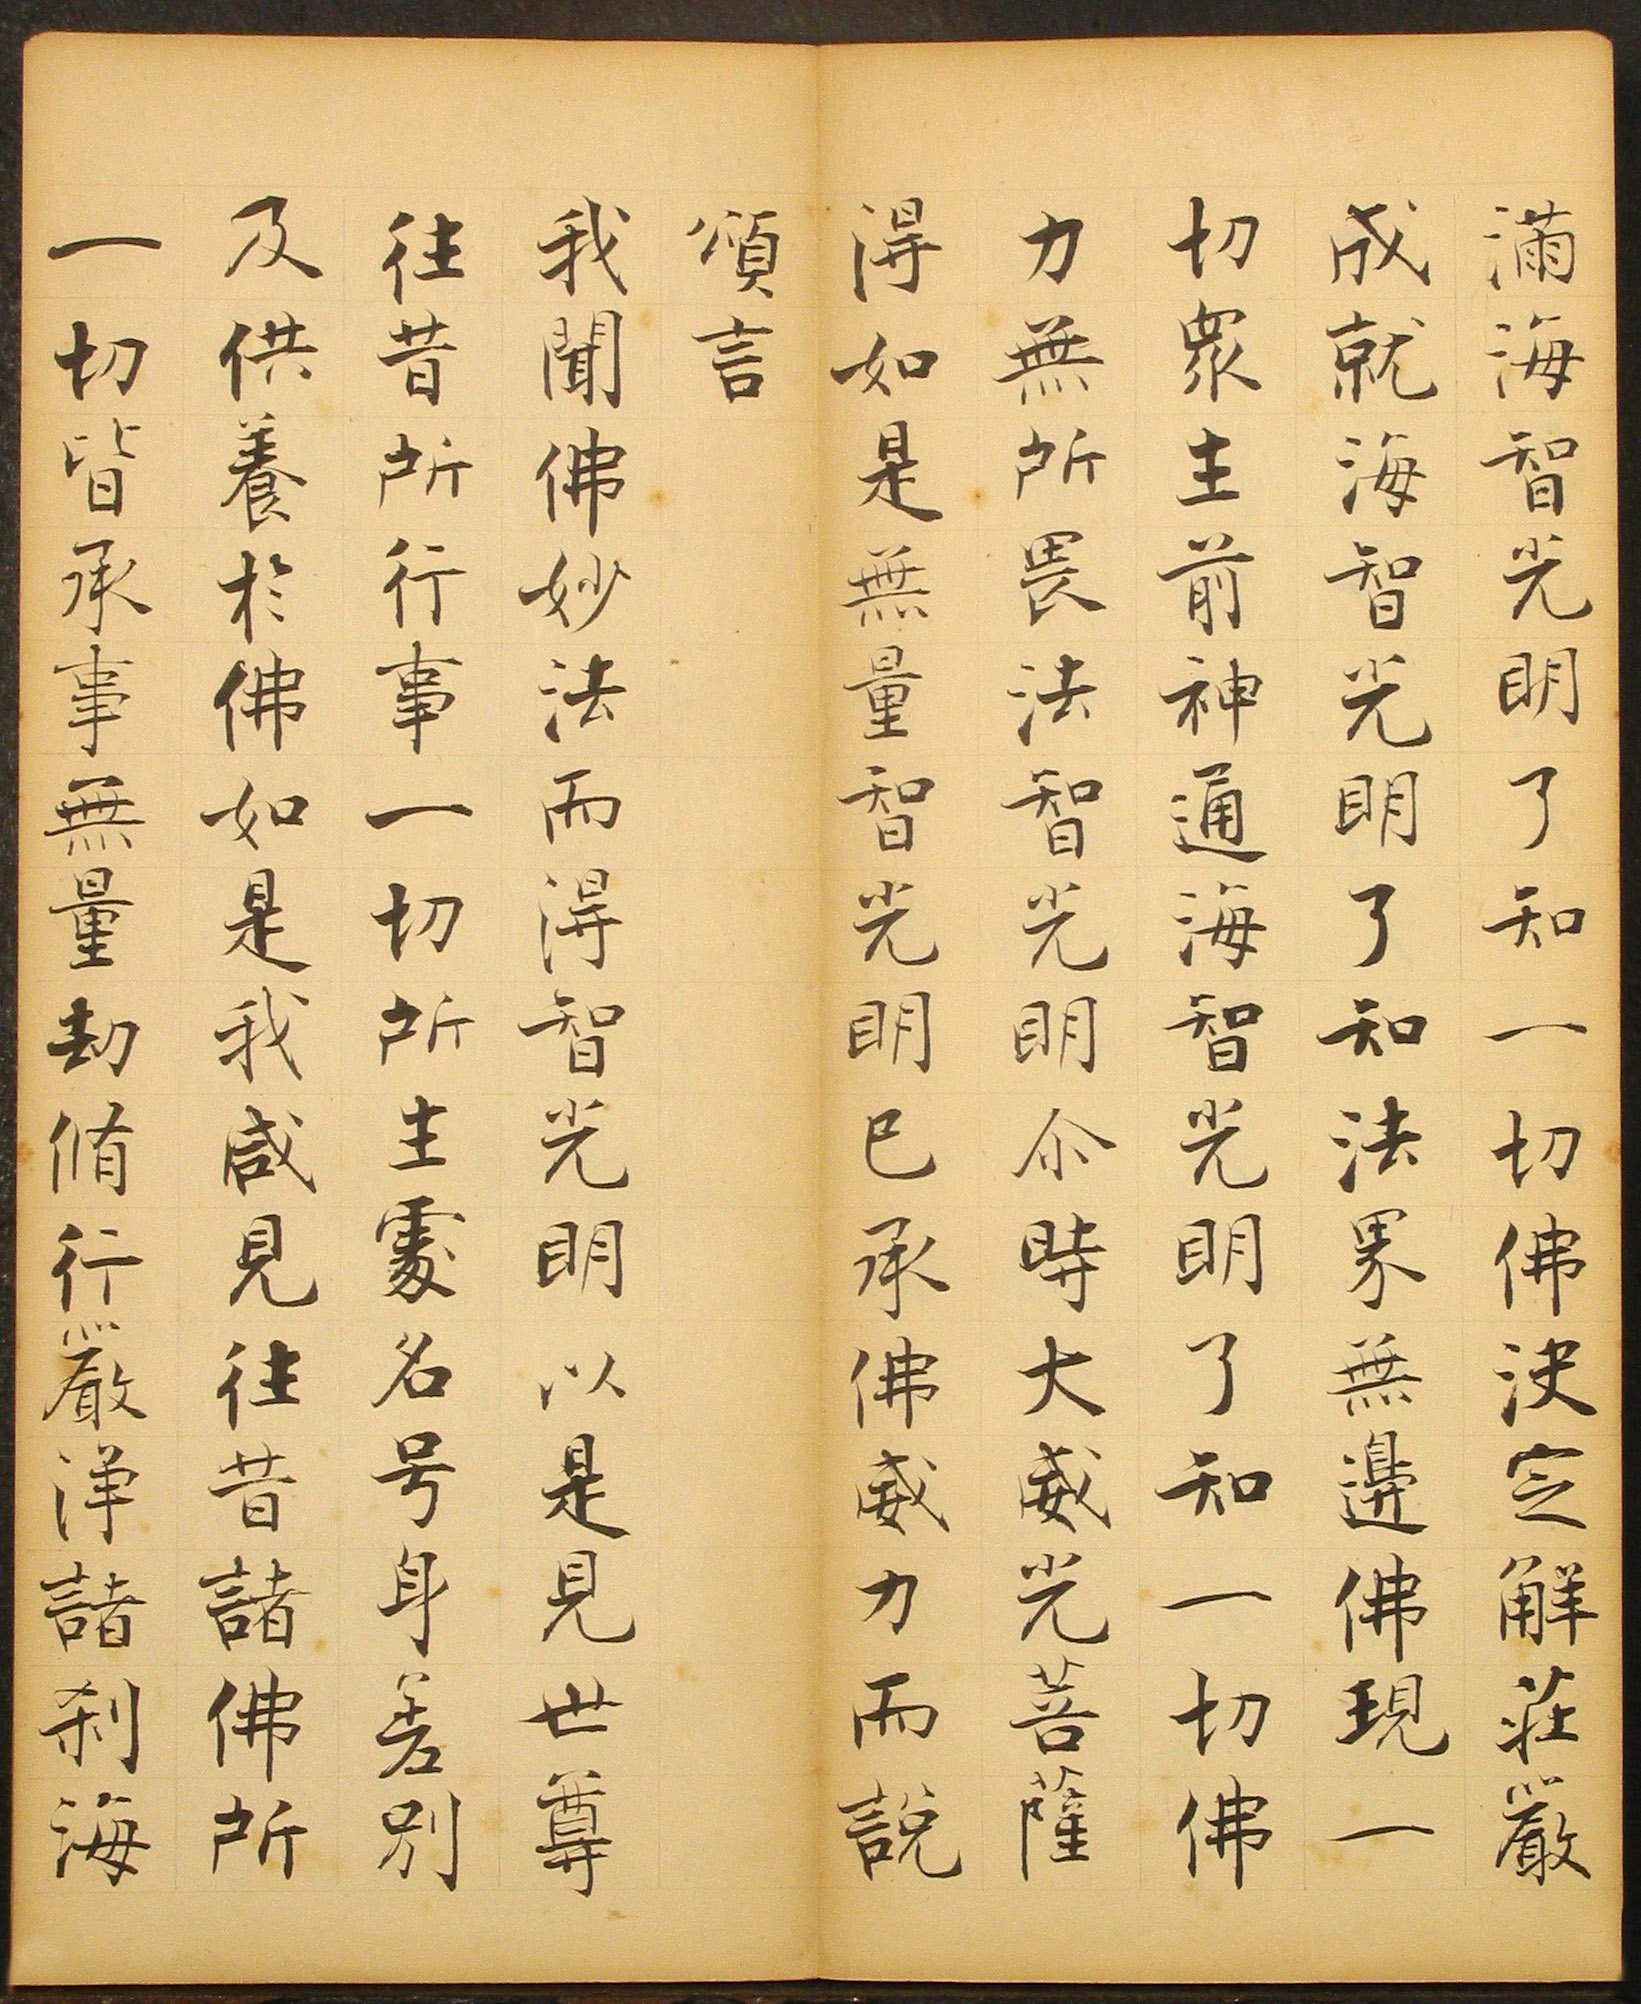 滿海智光明了知一切佛決定解莊嚴
成就海智光明了知法界無邊佛現一
切衆生前神通海智光明了知一切佛
力無所畏法智光明尒時大威光菩薩
得如是無量智光明已承佛威力而說
頌言
我聞佛妙法而得智光明以是見世尊
往昔所行事一切所生處名号身差別
及供養於佛如是我咸見往昔諸佛所
一切皆承事無量劫脩行嚴淨諸刹海